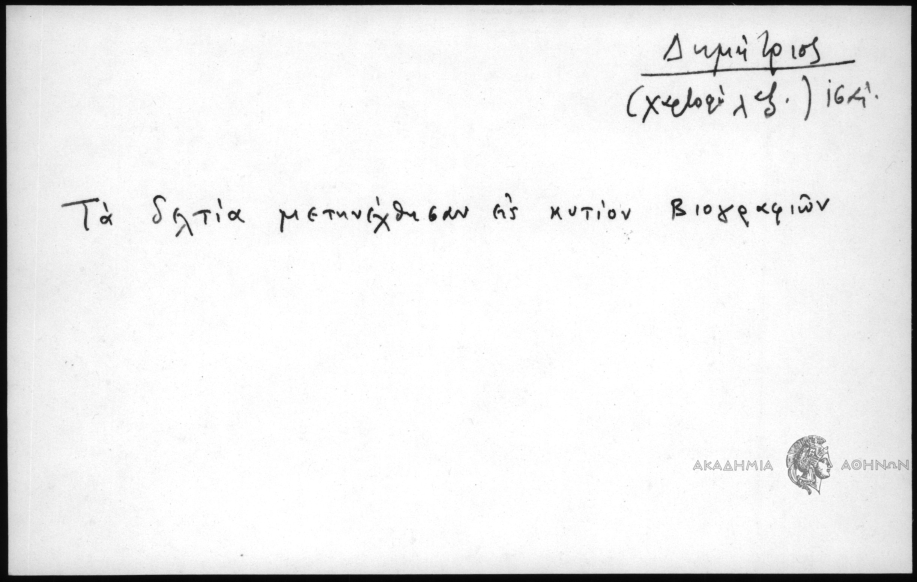 Δημήτριος
(χαρτοφύλαξ.)
Τὰ δελτία μετηνέχθησαν εἰς κυτίον Βιογραφιῶν
ΑΚΑΔΗΜΙΑ ΑΘΗΝΩΝ